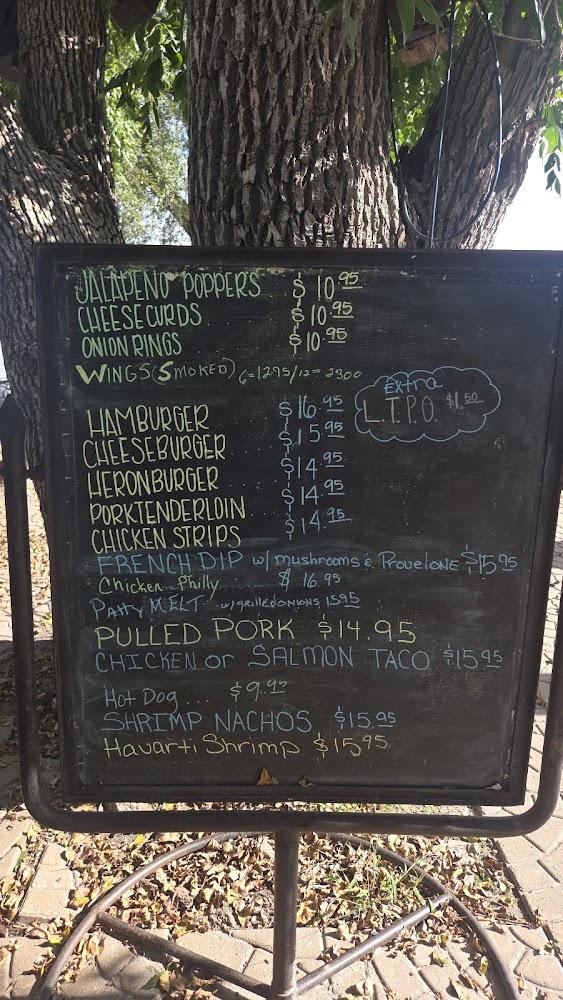 JALAPENO POPPERS $10.95
CHEESECURDS $10.95
ONION RINGS $10.95
WINGS (SMOKED) 6=1295/12=2300
Extra
L.T.P.O. $1.50
HAMBURGER $16.95
CHEESEBURGER $15.95
HERONBURGER $14.95
PORKTENDERLOIN $14.95
CHICKEN STRIPS $14.95
FRENCH DIP w/ mushrooms & ProveloNE $15.95
Chicken Philly $16.95
Patty MELT w/grilled onions 15.95
PULLED PORK $14.95
CHICKEN or SALMON TACO $15.95
Hot Dog ... $9.95
SHRIMP NACHOS $15.95
Havarti Shrimp $15.95